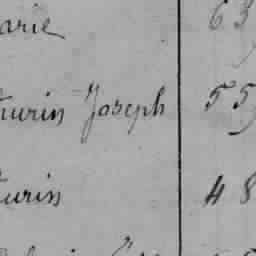 arie 63
turin Joseph 55
turin 48